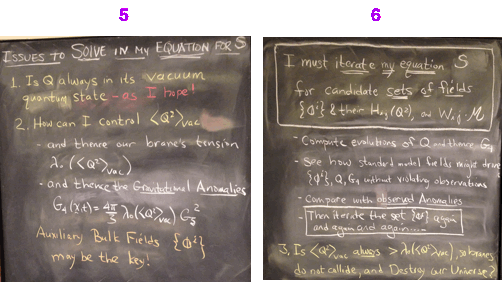 5
ISSUES to SOLVE IN MY EQUATION FOR S
1. Is Q always in its vacuum
quantum state - as I hope!
2. How can I control <Q²>vac
- and thence our brane's tension
λ₀(<Q²>vac)
- and thence the Gravitational Anomalies
Auxiliary Bulk Fields {Φⁱ}
may be the key!
6
I must iterate my equation S
for candidate sets of fields
{Φⁱ} & their
- Compute evolutions of Q and thence G₄
- See how standard model fields might drive
{Φⁱ}, Q, G₄ without violating observations
- Compare with observed Anomalies
- Then iterate the set {Φⁱ} again
and again and again...
3. Is <Q²>vac always > λ₀(<Q²>vac), so branes
do not collide, and Destroy our Universe?